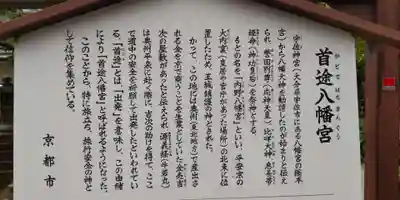 首途八幡宮
かどではちまんぐう
宇佐神宮（大分県宇佐市にある八幡宮の総本
宮）から八幡大神を勧請したのが始まりと伝え
られ、誉田別尊（応神天皇）・比咩大神・息長帯
姫命（神功皇后）を祭神とする。
もとの名を「内野八幡宮」といい、平安京の
大内裏（皇居や官庁があった場所）の北東に位
置したため、王城鎮護の神とされた。
かつて、この地には奥州（東北地方）で産出さ
れる金を京で商うことを生業としていた金売吉
次の屋敷があったと伝えられ、源義経（牛若丸）
は奥州平泉に赴く際に、吉次の助けを得て、ここ
で道中の安全を祈願して出発したといわれてい
る。「首途」とは、「出発」を意味し、この由緒
により「首途八幡宮」と呼ばれるようになった。
このことから、特に旅立ち、旅行安全の神と
して信仰を集めている。
京都市